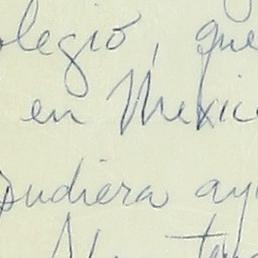 olegio, que
en Mexico
pudiera ayu